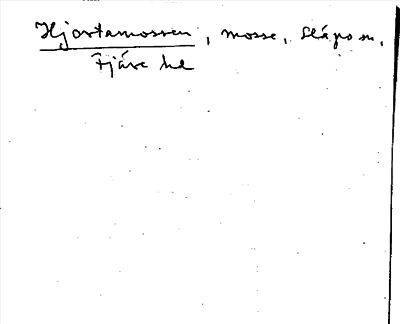 Hjortamossen, mosse, Släps sn,
Fjäre hd